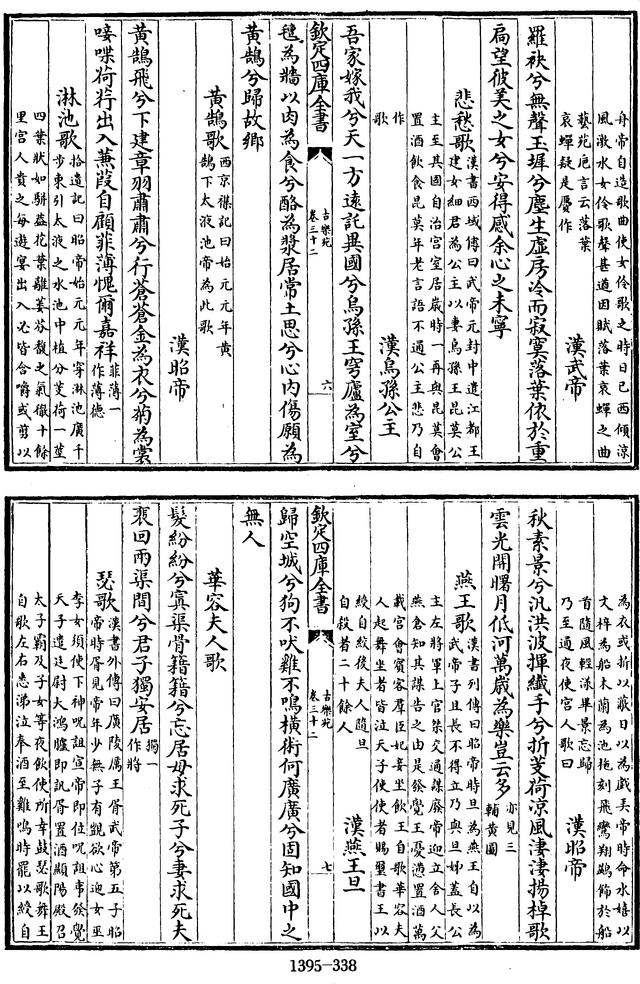 舟帝自造歌曲使女伶歌之時日已西傾涼
風激水女伶歌聲甚遒因賦落葉哀蟬之曲
藝苑巵言云落葉
哀蟬疑是贗作
漢武帝
羅袂兮無聲玉墀兮塵生虛房冷而寂寞落葉依於重
扃望彼美之女兮安得感余心之未寧
悲愁歌
漢書西域傳曰武帝元封中遣江都王
建女細君為公主以妻烏孫王昆莫公
主至其國自治宮室居歲時一再與昆莫會
置酒飲食昆莫年老言語不通公主悲乃自
作
歌
漢烏孫公主
吾家嫁我兮天一方遠託異國兮烏孫王穹廬為室兮
欽定四庫全書
古樂苑
卷三十二
六
氊為牆以肉為食兮酪為漿居常土思兮心內傷願為
黄鵠兮歸故鄉
黄鵠歌
西京雜記曰始元元年黄
鵠下太液池帝為此歌
漢昭帝
黄鵠飛兮下建章羽肅肅兮行蒼蒼金為衣兮菊為裳
唼喋荷荇出入蒹葭自顧菲薄愧爾嘉祥
菲薄一
作薄德
淋池歌
拾遺記曰昭帝始元元年穿淋池廣千
步東引太液之水池中植分芰荷一莖
四葉狀如駢葢花葉雜萎芬馥之氣徹十餘
里宮人貴之每遊宴出入必皆含嚼或剪以
為衣或折以蔽日以為戲弄帝時命水嬉以
文梓為船木蘭為池柂刻飛鸞翔鷁飾於船
首隨風輕漾畢景忘歸
乃至通夜使宮人歌曰
漢昭帝
秋素景兮汎洪波揮纖手兮折芰荷涼風淒淒揚棹歌
雲光開曙月低河萬歲為樂豈云多
亦見三
輔黄圖
燕王歌
漢書列傳曰昭帝時旦為燕王自以為
武帝子且長不得立乃與旦姊蓋長公
主左將軍上官桀交通謀廢帝迎立會舍人父
燕倉知其謀告之由是發覺王憂懣置酒萬
載宮會賓客羣臣妃妾坐飲王自歌華容夫
人起舞坐者皆泣天子使使者賜璽書王以
綬自絞後夫人隨旦
自殺者二十餘人
漢燕王旦
欽定四庫全書
古樂苑
卷三十二
七
歸空城兮狗不吠雞不鳴橫術何廣廣兮固知國中之
無人
華容夫人歌
髮紛紛兮寘渠骨籍籍兮忘居母求死子兮妻求死夫
裵回兩渠間兮君子獨安居
獨一
作將
瑟歌
漢書外傳曰廣陵厲王胥武帝第五子昭
帝時胥見帝年少無子有覬欲心迎女巫
李女須使下神呪詛宣帝即位呪詛事發覺
天子遣廷尉大鴻臚即訊胥置酒顯陽殿召
太子霸及子女等夜飲使所幸鼓瑟歌舞王
自歌左右悉涕泣奉酒至雞鳴時罷以綬自
1395-338